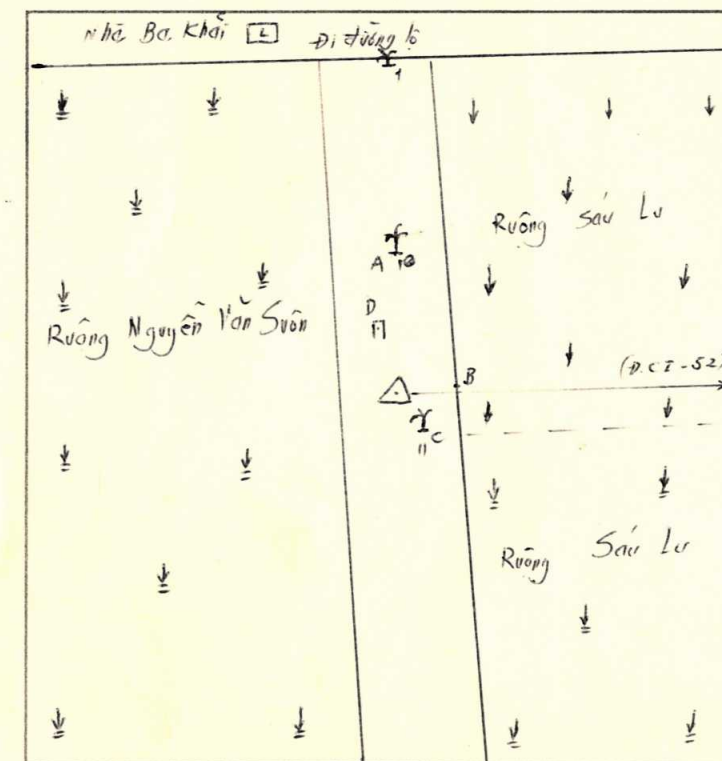 Nhà Ba Khải L Đi đường lộ
1
Ruộng Sáu Lu
A 10
D
Ruộng Nguyễn Văn Suôn
(Đ.CI-52)
B
C
11
Ruộng Sáu Lu